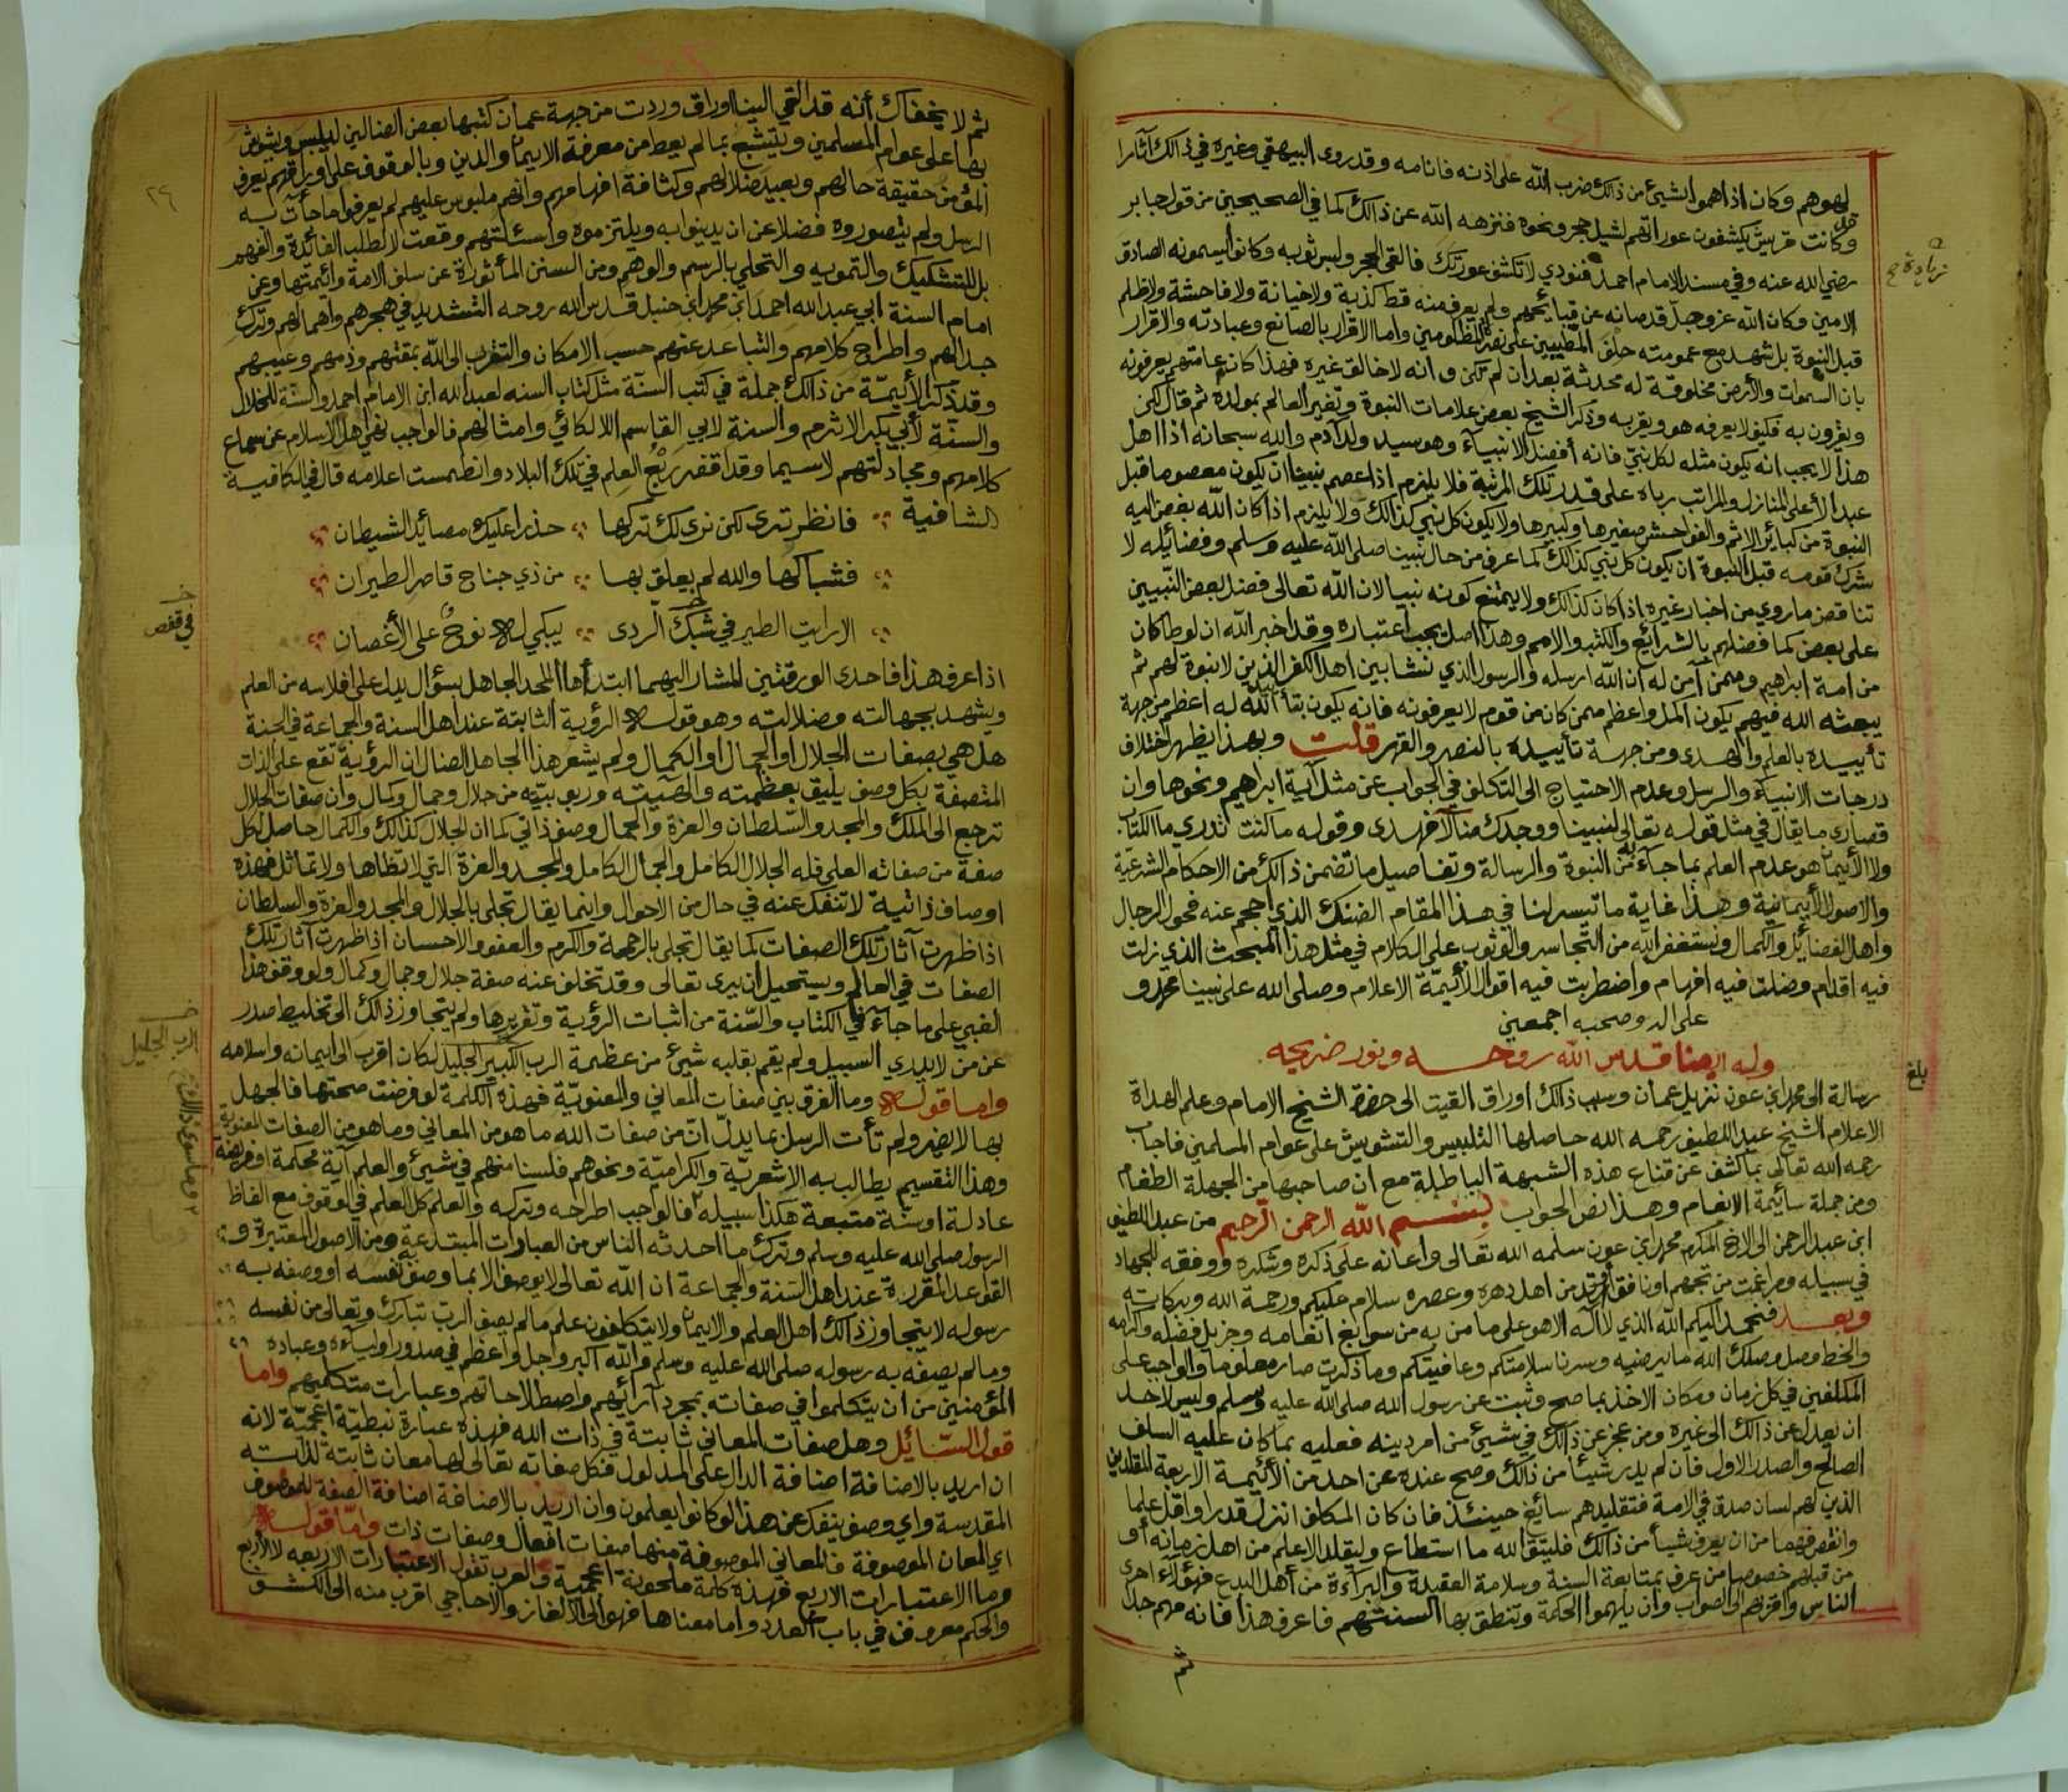 لهوهم وكان اذا هموا بشيئ من ذالك ضرب الله على اذنه فانامه وقد روى البيهقي وغيره في ذالك آثارا
وكانت قريش يكشفون عوراتهم لشيل حجر ونحوه فنزهه الله عن ذالك كما في الصحيحين من قول جابر
رضي الله عنه وفي مسند الامام احمد فنودي لا تكشف عورتك فالقى الحجر ولبس ثوبه وكانوا يسمونه الصادق
الامين وكان الله عز وجل قد صانه عن قبائحهم ولم يعرف منه قط كذبة ولا خيانة ولا فاحشة ولا ظلم
قبل النبوة بل شهد مع عمومته حلف المطيبين على نصر المظلومين واما الاقرار بالصانع وعبادته والاقرار
بان السموات والأرض مخلوقة له محدثة بعد ان لم تكن وانه لا خالق غيره فهذا كان عامتهم يعرفونه
ويقرون به فكيف لا يعرفه هو ويقر به وذكر الشيخ بعض علامات النبوة وتغير العالم بمولده ثم قال لكن
هذا لا يجب انه يكون مثله لكل نبي فانه أفضل الانبيآء وهو سيد ولد آدم والله سبحانه اذا اهل
عبدا لأعلى المنازل والمراتب رباه على قدر تلك المرتبة فلا يلزم اذا عصم نبينا ان يكون معصوما قبل
النبوة من كبائر الاثم والفواحش صغيرها وكبيرها ولا يكون كل نبي كذالك ولا يلزم اذا كان الله بغض اليه
شرك قومه قبل النبوة ان يكون كل نبي كذالك كما عرف من حال نبينا صلى الله عليه وسلم وفضائله لا
تناقض ما روي من اخبار غيره اذا كان كذالك ولا يمنع كونه نبيا لان الله تعالى فضل بعض النبيين
على بعض كما فضلهم بالشرائع والكتب والامم وهذا اصل يجب اعتباره وقد اخبر الله ان لوطا كان
من امة ابراهيم وممن آمن له ان الله ارسله والرسول الذي نشا بين اهل الكفر الذين لا نبوة لهم ثم
يبعثه الله فيهم يكون اكمل واعظم ممن كان من قوم لا يعرفونه فانه يكون بتأييد الله له اعظم من جهة
تأييده بالعلم والهدى ومن جهة تأييده بالنصر والقهر قلت وبهذا يظهر اختلاف
درجات الانبيآء والرسل وعدم الاحتياج الى التكلف في الجواب عن مثل آية ابراهيم ونحوها وان
قصارى ما يقال في مثل قوله تعالى لنبينا ووجدك ضآلا فهدى وقوله ما كنت تدري ما الكتاب
ولا الأيمان هو عدم العلم بما جآء به من النبوة والرسالة وتفاصيل ما تضمن ذالك من الاحكام الشرعية
والاصول الأيمانية وهذا غاية ما تيسر لنا في هذا المقام الضنك الذي احجم عنه فحول الرجال
واهل الفضائل والكمال ونستغفر الله من التجاسر والوثوب على الكلام في مثل هذا المبحث الذي زلت
فيه اقدام وضلت فيه افهام واضطربت فيه اقوال الأئمة الاعلام وصلى الله على نبينا محمد و
على اله وصحبه اجمعين
وله ايضا قدس الله روحه ونور ضريحه
رسالة الى محمد ابن عون نزيل عمان وسبب ذالك اوراق القيت الى حضرة الشيخ الامام وعلم الهداة
الاعلام الشيخ عبد اللطيف رحمه الله حاصلها التلبيس والتشويش على عوام المسلمين فاجاب
رحمه الله تعالى بما كشف عن قناع هذه الشبهة الباطلة مع ان صاحبها من الجهلة الطغام
ومن جملة سائمة الانعام وهذا نص الجواب بسم الله الرحمن الرحيم من عبد اللطيف
ابن عبد الرحمن الى الاخ المكرم محمد ابن عون سلمه الله تعالى واعانه على ذكره وشكره ووفقه للجهاد
في سبيله ومراغمت من تجهم او نافق او ارتد من اهل دهره وعصره سلام عليكم ورحمة الله وبركاته
وبعد فنحمد اليكم الله الذي لا اله الا هو على ما من به من سوابغ انعامه وجزيل فضله واكرامه
والخط وصل وصلك الله ما يرضيه وسرنا سلامتكم وعافيتكم وما ذكرت صار معلوما والواجب على
المكلفين في كل زمان ومكان الاخذ بما صح وثبت عن رسول الله صلى الله عليه وسلم وليس لاحد
ان يعدل عن ذالك الى غيره ومن عجز عن ذالك في شيئ من امر دينه فعليه بما كان عليه السلف
الصالح والصدر الاول فان لم يدر شيئا من ذالك وصح عنده عن احد من الأئمة الاربعة المقلدين
الذين لهم لسان صدق في الامة فتقليدهم سائغ حينئذ فان كان المكلف انزل قدرا واقل علما
وانقص فهما من ان يعرف شيئا من ذالك فليتق الله ما استطاع وليقلد الاعلم من اهل زمانه أو
من قبلهم خصوصا من عرف بمتابعة السنة وسلامة العقيدة والبرآءة من أهل البدع فهؤلآء احرى
الناس واقربهم الى الصواب وان يلهموا الحكمة وتنطق بها السنتهم فاعرف هذا فانه مهم جدا
ثم
زيادة
بلغ
ثم لا يخفاك أنه قد القي الينا اوراق وردت من جهة عمان كتبها بعض الضالين ليلبس ويشوش
بها على عوام المسلمين ويتشبع بما لم يعط من معرفة الايمان والدين وبالوقوف على اوراقهم يعرف
المؤمن حقيقة حالهم وبعيد ضلالهم وكثافة افهامهم وانهم ملبوس عليهم لم يعرفوا ما جأت به
الرسل ولم يتصوروه فضلا عن ان يدينوا به ويلتزموه واسئلتهم وقعت لا لطلب الفائدة والفهم
بل للتشكيك والتمويه والتحلي بالرسم والوهم ومن السنن المأثورة عن سلف الامة وأئمتها وعن
امام السنة ابي عبد الله احمد ابن محمد ابن حنبل قدس الله روحه التشديد في هجرهم واهمالهم وترك
جدالهم واطراح كلامهم والتباعد عنهم حسب الامكان والتقرب الى الله بمقتهم وذمهم وعيبهم
وقد ذكر الأئمة من ذالك جملة في كتب السنة مثل كتاب السنة لعبد الله ابن الامام احمد والسنة للخلال
والسنة لأبي بكر الاثرم والسنة لابي القاسم اللالكائي وامثالهم فالواجب نهي اهل الاسلام عن سماع
كلامهم ومجادلتهم لا سيما وقد اقفر ربع العلم في تلك البلاد وانطمست اعلامه قال في الكافية
الشافية فانظر ترى لكن نرى لك تركها حذرا عليك مصائد الشيطان
فشباكها والله لم يعلق بها من ذي جناح قاصر الطيران
الا رايت الطير في شبك الردى يبكي له نوح على الأغصان
في قفص
اذا عرف هذا فاحدى الورقتين المشار اليهما ابتدأها الملحد الجاهل بسؤال يدل على افلاسه من العلم
ويشهد بجهالته وضلالته وهو قوله الرؤية الثابتة عند اهل السنة والجماعة في الجنة
هل هي بصفات الجلال او الجمال او الكمال ولم يشعر هذا الجاهل الضال ان الرؤية تقع على الذات
المتصفة بكل وصف يليق بعظمته والهيته وربوبيته من جلال وجمال وكمال وان صفات الجلال
ترجع الى الملك والمجد والسلطان والعزة والجمال وصف ذاتي كما ان الجلال كذالك والكمال حاصل بكل
صفة من صفاته العلى فله الجلال الكامل والجمال الكامل والمجد والعزة التي لا تضاها ولا تماثل فهذه
اوصاف ذاتية لا تنفك عنه في حال من الاحوال وانما يقال تجلى بالجلال والمجد والعزة والسلطان
اذا ظهرت آثار تلك الصفات كما يقال تجلى بالرحمة والكرم والعفو والاحسان اذا ظهرت آثار تلك
الصفات في العالم ويستحيل ان يرى تعالى وقد تخلف عنه صفة جلال وجمال وكمال ولو وقف هذا
الغبي على ما جآء في الكتاب والسنة من اثبات الرؤية وتقريرها ولم يتجاوز ذالك الى تخليط صدر
عن من لا يدري السبيل ولم يقم بقلبه شيئ من عظمة الرب الكبير الجليل لكان اقرب الى ايمانه واسلامه
واما قوله وما الفرق بين صفات المعاني والمعنوية فهذه الكلمة لو فرضت صحتها فالجهل
بها لا يضر ولم تأت الرسل بما يدل ان من صفات الله ما هو من المعاني وما هو من الصفات المعنوية
وهذا التقسيم يطالب به الاشعرية والكرامية ونحوهم فلسنا منهم في شيئ والعلم آية محكمة او فريضة
عادلة او سنة متبعة هكذا سبيله فالواجب اطراحه وتركه والعلم كل العلم في الوقوف مع الفاظ
الرسول صلى الله عليه وسلم وترك ما احدثه الناس من العبارات المبتدعة ومن الاصول المعتبرة و
القواعد المقررة عند اهل السنة والجماعة ان الله تعالى لا يوصف الا بما وصف به نفسه او وصفه به
رسوله لا يتجاوز ذالك اهل العلم والايمان ولا يتكلفون علم ما لم يصف الرب تبارك وتعالى من نفسه
وما لم يصفه به رسوله صلى الله عليه وسلم والله اكبر واجل واعظم في صدور اوليآءه وعباده
المؤمنين من ان يتكلموا في صفاته بمجرد آرائهم واصطلاحاتهم وعبارات متكلميهم واما
قول السائل وهل صفات المعاني ثابتة في ذات الله فهذه عبارة نبطية اعجمية لانه
ان اريد بالاضافة اضافة الدال على المدلول فكل صفاته تعالى لها معان ثابتة لذاته
المقدسة واي وصف ينفك عن هذا لو كانوا يعلمون وان اريد بالاضافة اضافة الصفة للموصوف
اي المعان الموصوفة فالمعاني الموصوفة منها صفات افعال وصفات ذات واما قوله
وما الاعتبارات الاربع فهذه كلمة ملحونة اعجمية والعرب تقول الاعتبارات الاربعه لا الأربع
والحكم معروف في باب العدد واما معناها فهو الى الألغاز والأحاجي اقرب منه الى الكشف
الرب الجليل
وما سوى ذالك
٢٩